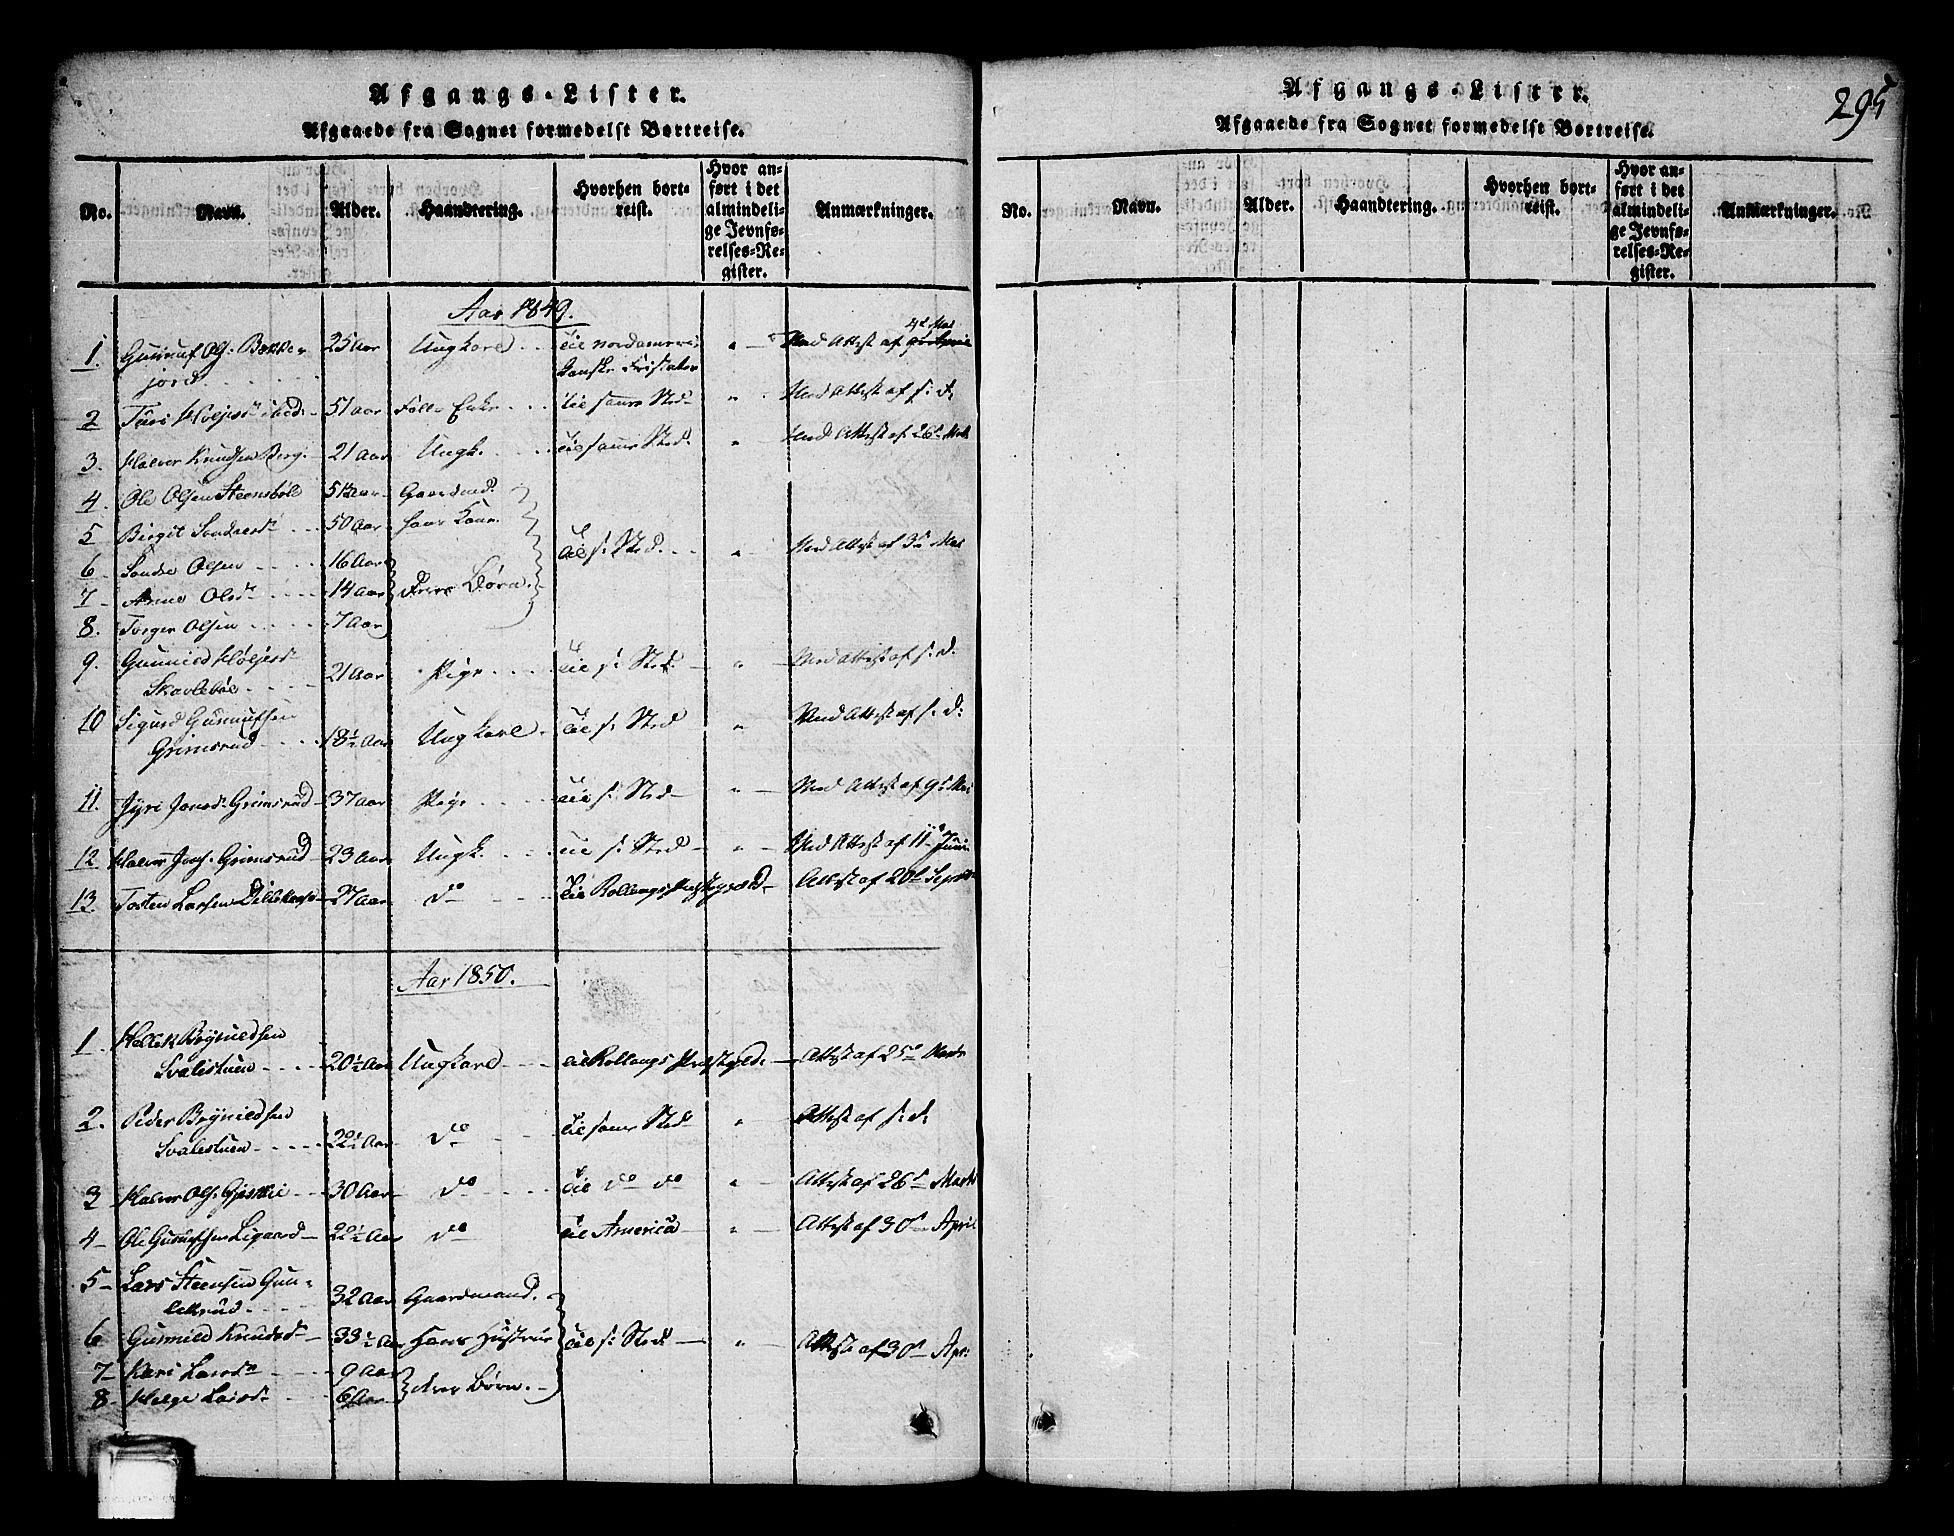 Afgangs-Lister.
Afgaaede fra Sognet formedelst Bortreise.
No. Navn. Alder. Haandtering. Hvorhen bortreist. Hvor anført i det almindelige Jevnførelses-Register. Anmærkninger.
Aar 1849.
1. Gunnuf Ols. Bakkejord 25 Aar Ungkarl til nordameri- 4de Mai
Med Attest af
2 Turi 51 Aar Enke til samme Sted " Med Attest af s. d.
3. Halvor Knudsen Berg 21 Aar Ungk. til samme Sted " Med Attest af 26de
4 Ole Olsen Steensböle Gaardmd.
5 Birgit Sondresdr 50 Aar hans Kone
6 Sondre Olsen 16 Aar til s. Sted " Med Attest af 3de Mai
7 Anne Olsdr 14 Aar Børn
8. Torger Olsen 7 Aar
9. Gunnild 21 Aar Pige til s. Sted " Med Attest af s. d.
10 Sigurd Gunnufsen
Grimsrud 18½ Aar Ungkarl til s. Sted " Med Attest af s. d.
11. Jyri Jonsdr Grimsrud 37 Aar Pige til s. Sted " Med Attest af 9de Mai
12 Halvor Grimsrud 23 Aar Ungk. til s. Sted " Med Attest af 11te Juni
13. Tosten Larsen 27 Aar do til Rollougs Præstegjeld Attest af 20de Septbr
Aar 1850.
1 Hellek Brynildsen
Svalestuen 20½ Aar Ungkarl til Rollougs Præstegjeld Attest af 25de Marts
2. Peder Brynildsen
Svalestuen 22½ Aar do til samme Sted " Attest af s. d.
3 Halvor Ols. 30 Aar do til do do " Attest af 26de Marts
4 Ole Gunnufsen Ligaard 22½ Aar do til America " Attest af 30te April
5 Lars Steensen Gun-
lekrud 32 Aar Gaardmand.
6 Gunnild Knudsdr 33½ Aar Hans Hustrue til s. Sted " Attest af 30te Apr.
7 Kari Larsdr 9 Aar
8 Helge Larsdr 6 Aar Børn.
Afgangs-Lister.
295
Afgaaede fra Sognet formedelst Bortreise.
No. Navn. Alder. Haandtering. Hvorhen bortreist. Hvor anført i det almindelige Jevnførelses-Register. Anmærkninger.